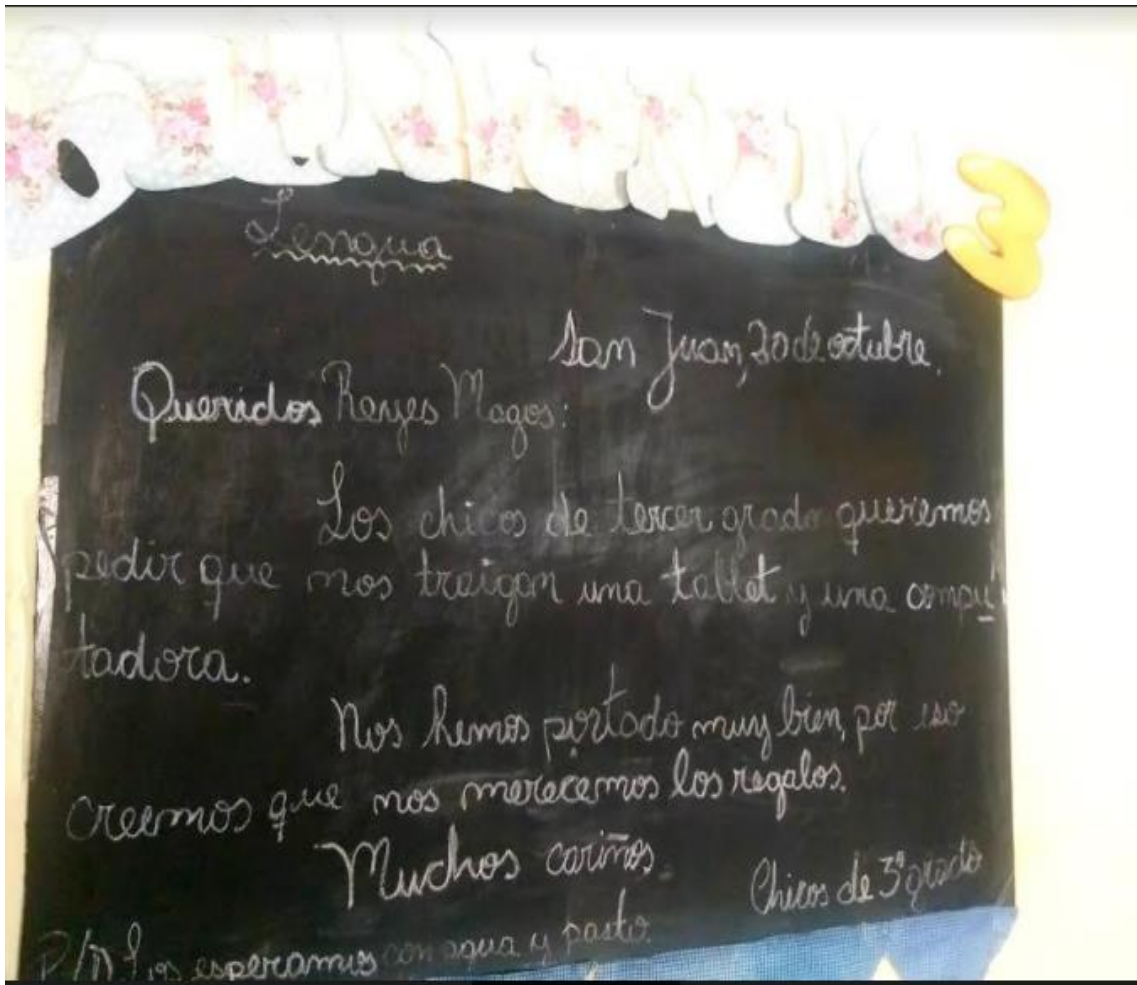 Lengua
San Juan, 20 de octubre.
Queridos Reyes Magos:
Los chicos de tercer grado queremos
pedir que nos traigan una tablet y una compu
tadora.
Nos hemos portado muy bien, por eso
creemos que nos merecemos los regalos.
Muchos cariños.
Chicos de 3º grado
P/D Los esperamos con agua y pasto.
3